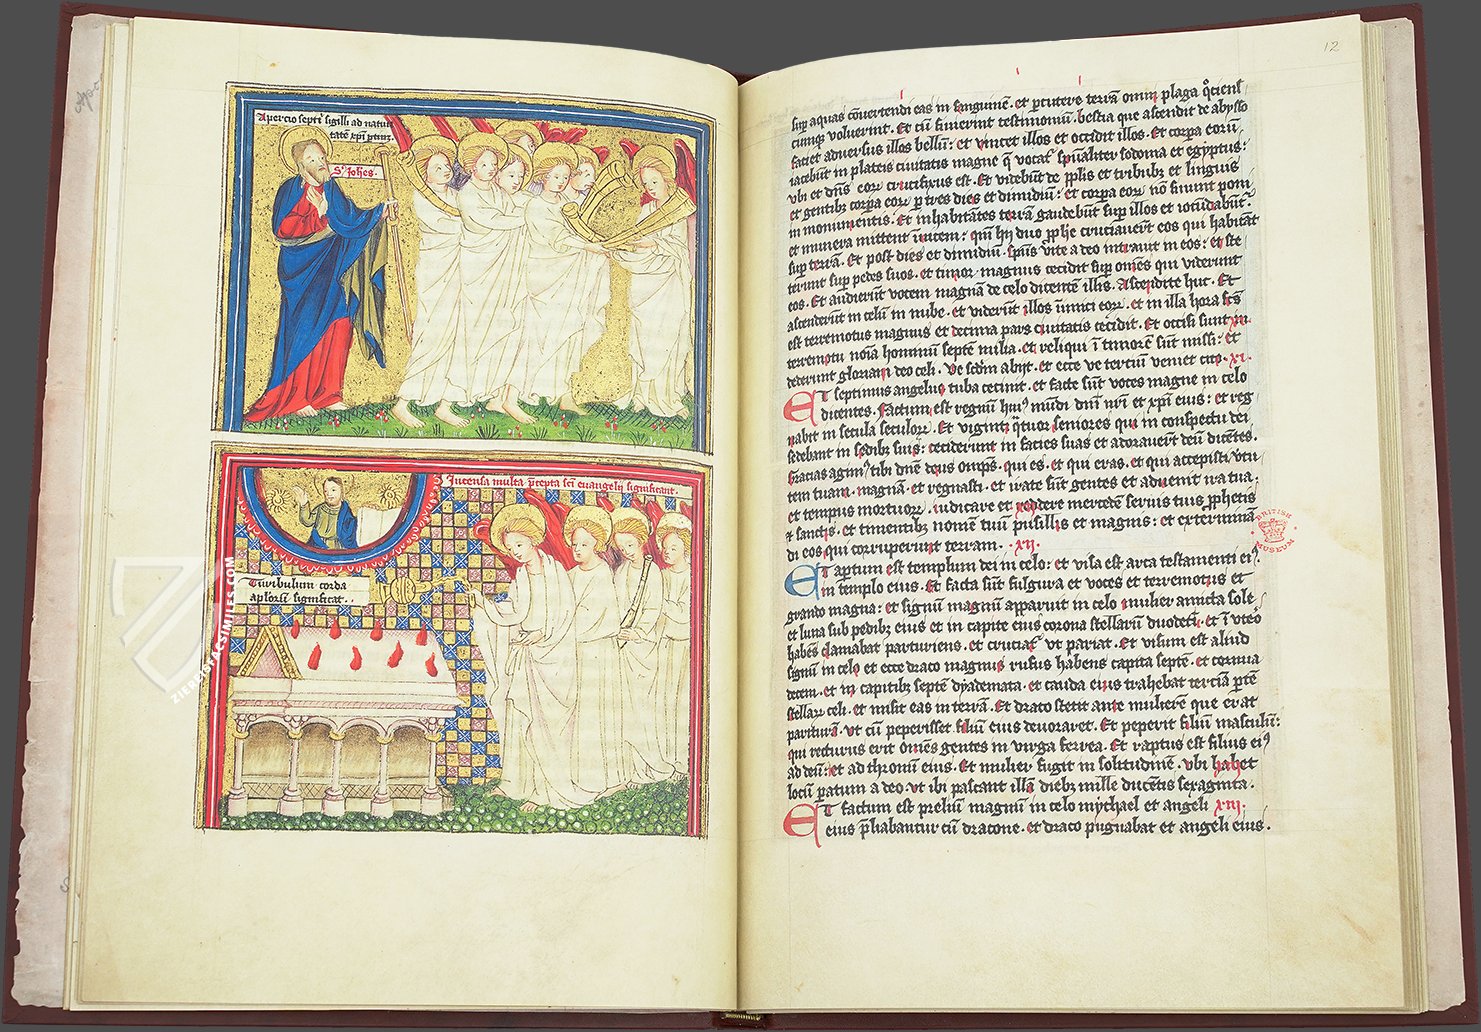 Apercio septi sigilli ad natiui
tatē xp̄i ptinꝫ.
S. Johēs.
Incensa multa p̄cepta sci euangelii significant.
Turibulum corda
aplorum significat..
ZIEREIS FACSIMILES.COM
12
suꝑ aquas cōuertendi eas in sanguinē. et ꝑcutere terrā omni plaga q̊ciens
cumqꝫ voluerint. Et cū finierint testimoniū. bestia que ascendit de abysso
faciet aduersus illos bellū: et vincet illos et occidit illos. Et corpa eorū
iacebūt in plateis ciuitatis magne q̄ vocat̄ spūaliter sodoma et egyptus:
vbi et dn̄s eoꝝ crucifixus est. Et videbūt de pplis et tribubꝫ et linguis
et gentibꝫ corpa eoꝝ p tres dies et dimidiū: et corpa eoꝝ nō sinunt poni
in monumentis. Et inhabitātes terrā gaudebūt suꝑ illos et iocūdabūt̄.
et munera mittent inuicem: qm̄ hij duo pphe cruciauerūt eos qui habitāt
suꝑ terrā. Et post dies et dimidiū. spūs vite a deo intrauit in eos: et ste
terunt suꝑ pedes suos. et timor magnus cecidit suꝑ om̄es qui viderunt
eos. Et audierūt vocem magnā de celo dicentē illis. Ascendite huc. Et
ascenderūt in celū in nube. et viderūt illos inimici eoꝝ. et in illa hora fc̄s
est terremotus magnus et decima pars ciuitatis cecidit. Et occisi sunt in
terremotu noīa hominū septē milia. et reliqui ī timorē sūt missi: et
dederunt gloriam deo celi. Ve scdm abijt. et ecce ve tertiū veniet cito. .xi.
ET septimus angelus tuba cecinit. et facte sūt voces magne in celo
dicentes. Factum est regnū huiꝰ mūdi dn̄i nr̄i et xp̄i eius: et reg
nabit in secula seculoꝝ. Et viginti q̄tuor seniores qui in conspectu dei
sedebant in sedibꝫ suis: ceciderunt in facies suas et adorauerūt deū dicētes.
Gracias agimꝰ tibi dn̄e deus omp̄s. qui es. et qui eras. et qui accepisti virtu
tem tuam. magnā. et regnasti. et irate sūt gentes et aduenit ira tua.
et tempus mortuoꝝ. iudicare et reddere mercedē seruis tuis pphetis
et sanctis. et timentibꝫ nomen tuū pusillis et magnis: et exterminā
di eos qui corruperunt terram. .xij.
ET apertum est templum dei in celo: et visa est arca testamenti eiꝰ
in templo eius. Et facta sūt fulgura et voces et terremotus et
grando magna: et signū magnū apparuit in celo mulier amicta sole.
et luna sub pedibꝫ eius et in capite eius corona stellarū duodecī. et ī vtēo
habēs clamabat parturiens. et cruciat̄ vt pariat. Et visum est aliud
signū in celo et ecce draco magnus rufus habens capita septē. et cornua
decem. et in capitibꝫ septē dyademata. et cauda eius trahebat terciā ptē
stellaꝝ celi. et misit eas in terrā. Et draco stetit ante mulierē que erat
paritura. vt cū peperisset filiū eius deuoraret. Et peperit filiū masculū:
qui recturus erit om̄es gentes in virga ferrea. Et raptus est filius eiꝰ
ad deū: et ad thronū eius. Et mulier fugit in solitudinē. vbi habet
locū ꝑatum a deo. vt ibi pascant illā diebꝫ mille ducētis sexaginta.
ET factum est preliū magnū in celo mychael et angeli .xiij.
eius p̄liabantur cū dracone. et draco pugnabat et angeli eius.
BRITISH
MUSEUM